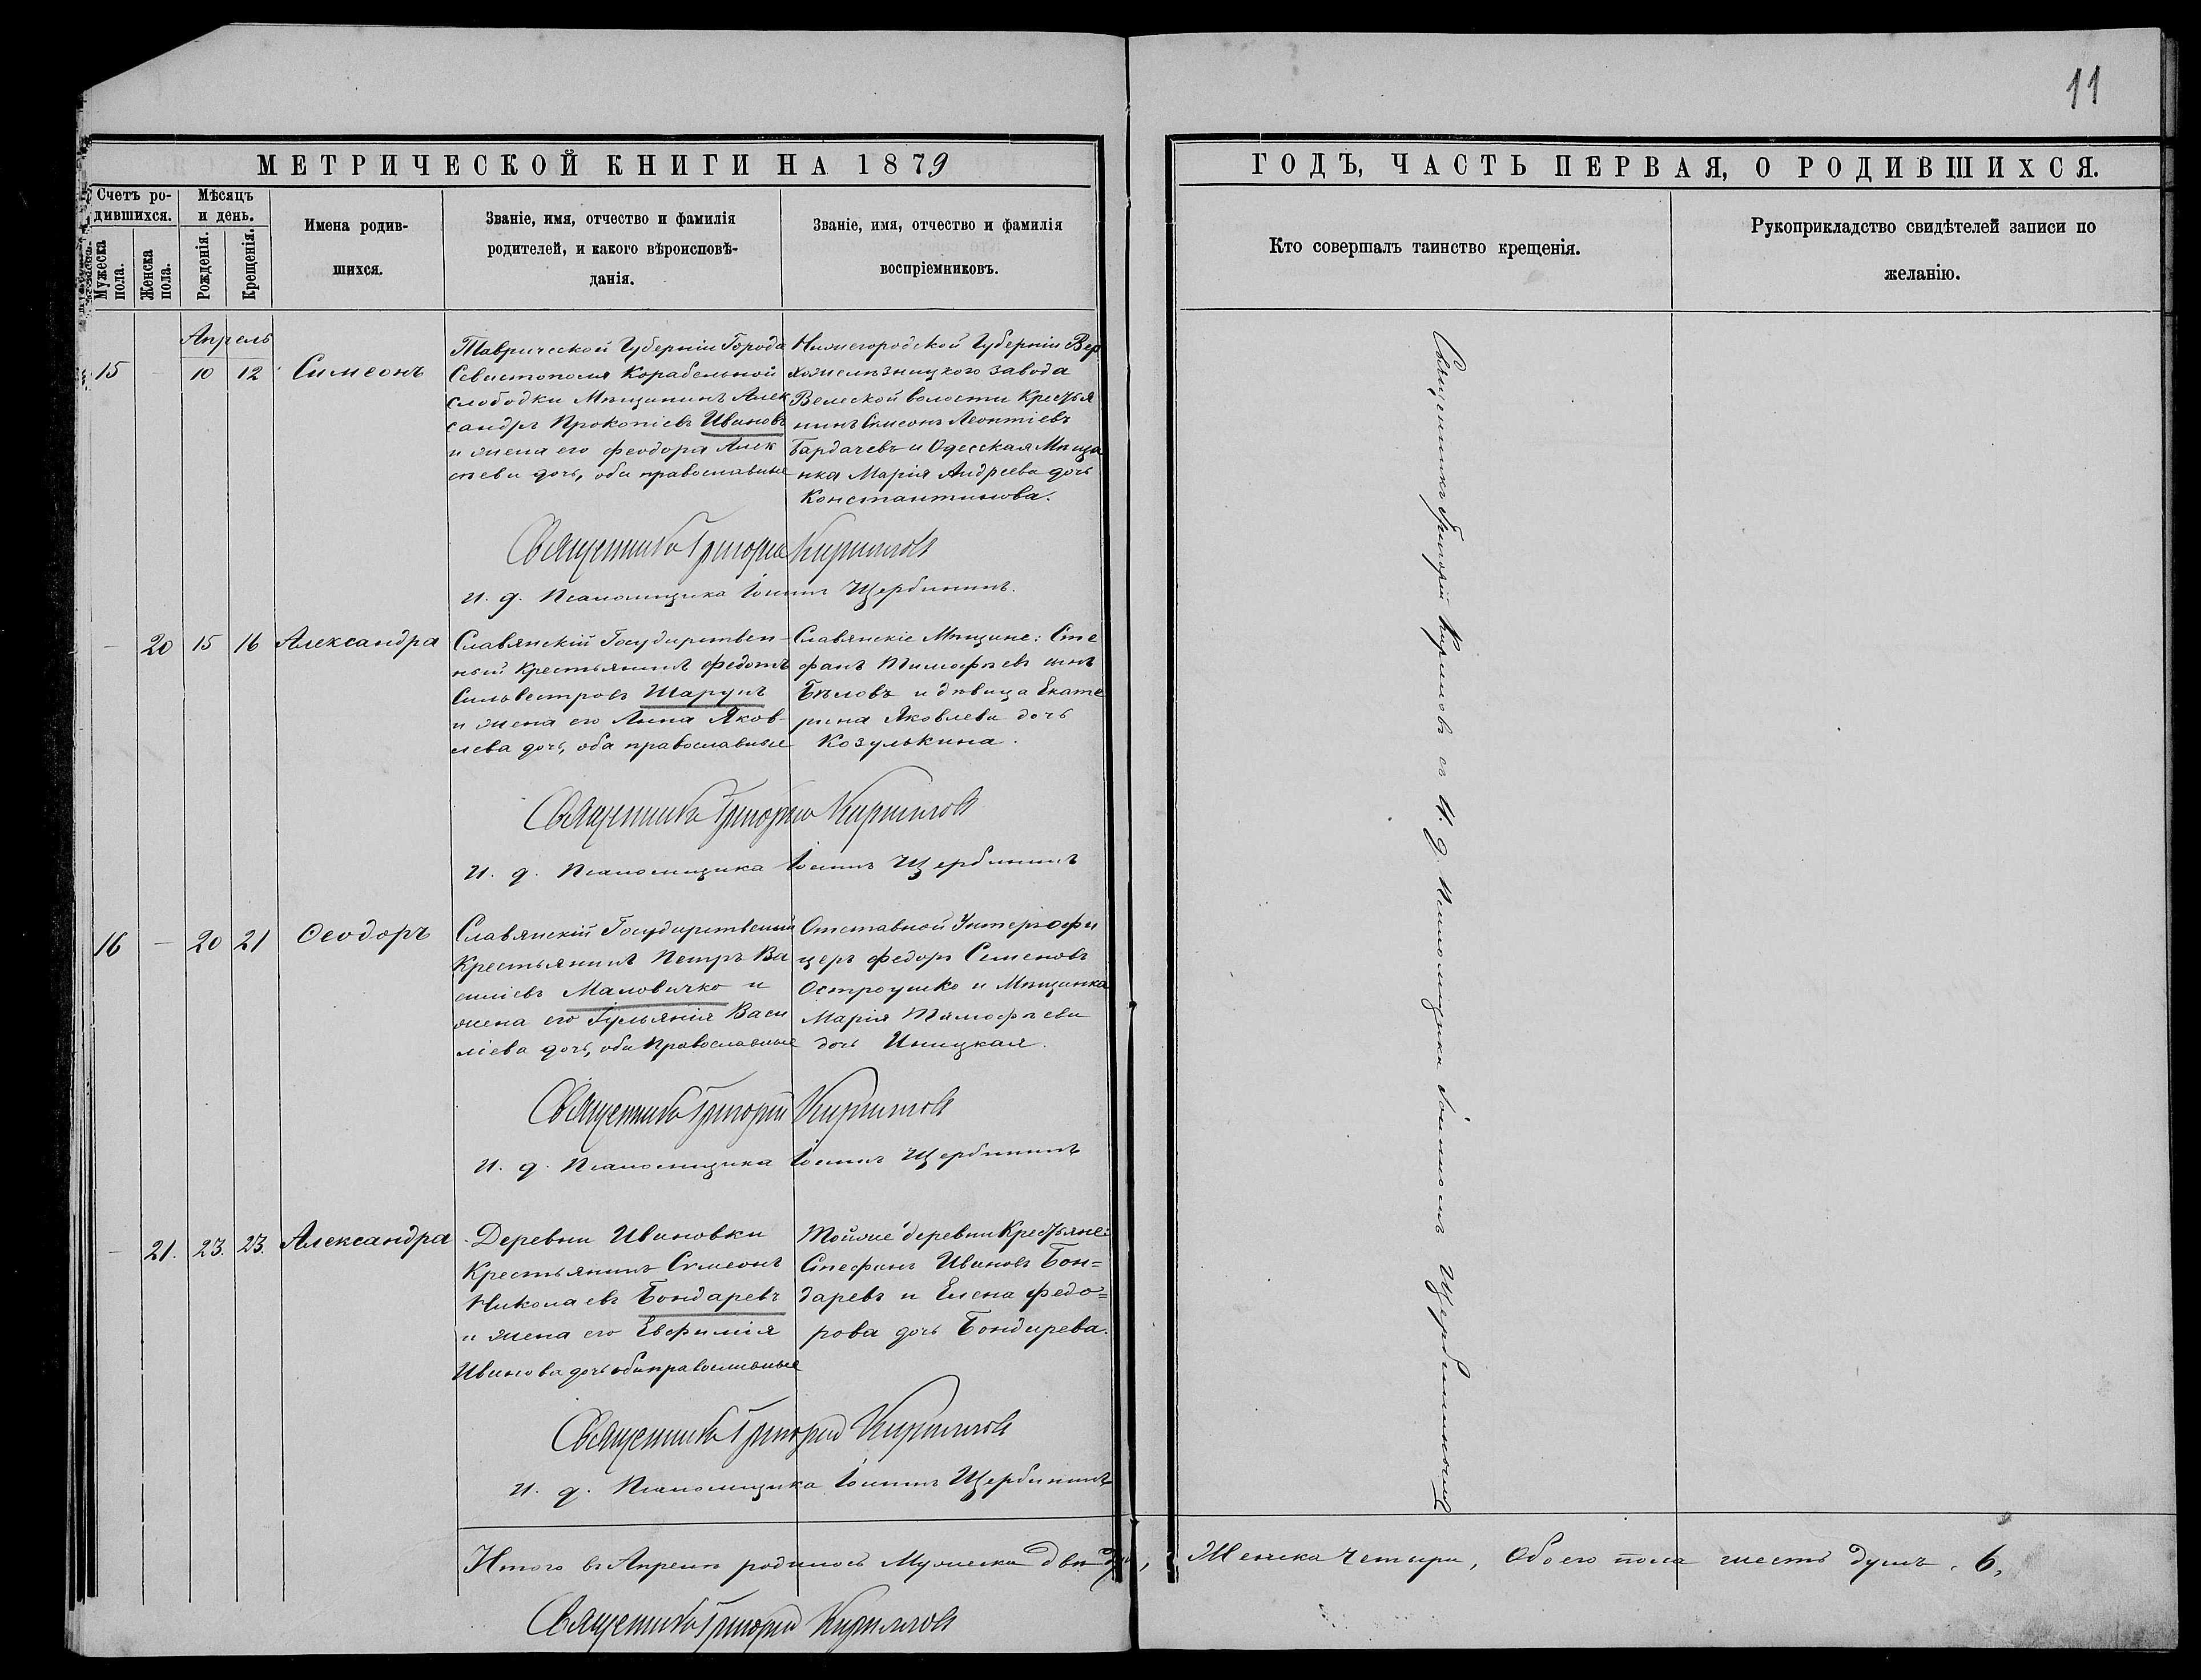 11
МЕТРИЧЕСКОЙ КНИГИ НА 1879
ГОДЪ, ЧАСТЬ ПЕРВАЯ, О РОДИВШИХСЯ.
Счетъ ро-
дившихся.
Мужеска
пола.
Женска
пола.
Мѣсяцъ
и день.
Рожденія.
Крещенія.
Имена родив-
шихся.
Званіе, имя, отчество и фамилія
родителей, и какого вѣроисповѣ-
данія.
Званіе, имя, отчество и фамилія
воспріемниковъ.
Кто совершалъ таинство крещенія.
Рукоприкладство свидѣтелей записи по
желанію.
Апрель
15 - 10 12 Симеонъ
Таврической Губерніи Города
Севастополя Корабельной
слободки Мѣщанинъ Алек
сандръ Прокопіевъ Ивановъ
и жена его Феодора Алек
сѣева дочь, оба православные
Нижегородской Губерніи Вер
хожелѣзницкого завода
волости Крестья
нинъ Симеонъ Леонтіевъ
Бардачевъ и Одесская Мѣща
нка Марія Андреева дочь
Константинова.
Священникъ Григорій Кириловъ
И. д. Псаломщика Іоаннъ Щербининъ.
- 20 15 16 Александра
Славянскій Государствен-
ный Крестьянинъ Федотъ
Сильвестровъ Шарунъ
и жена его Анна Яков-
лева дочь, оба православные
Славянскіе Мѣщане: Сте
фанъ Тимофѣевъ сынъ
Бѣловъ и дѣвица Екате
рина Яковлева дочь
Козулькина.
Священникъ Григорій Кириловъ
И. д. Псаломщика Іоаннъ Щербининъ
16 - 20 21 Ѳеодоръ
Славянскій Государственный
Крестьянинъ Петръ Ва
силіевъ Маловичко и
жена его Іульянія Васи
ліева дочь, оба Православные
Отставной Унтеръ-офи
церъ Федоръ Семеновъ
Остроушко и Мѣщанка
Марія Тимофѣева
дочь Иницкая.
Священникъ Григорій Кириловъ
И. д. Псаломщика Іоаннъ Щербининъ
- 21. 23. 23. Александра
Деревни Ивановки
Крестьянинъ Симеонъ
Николаевъ Бондаревъ
и жена его Евфимія
Иванова дочь оба православные
Тойже деревни Крестьяне:
Стефанъ Ивановъ Бон=
даревъ и Елена Федо=
рова дочь Бондарева.
Священникъ Григорій Кириловъ
И. д. Псаломщика Іоаннъ Щербининъ
Священникъ Григорій Кириловъ съ И. д. Псаломщика Іоанномъ Щербининымъ
Итого въ Апрелѣ родилось Мужеска два, Женска четыре, Обоего пола шесть душъ. 6,
Священникъ Григорій Кириловъ